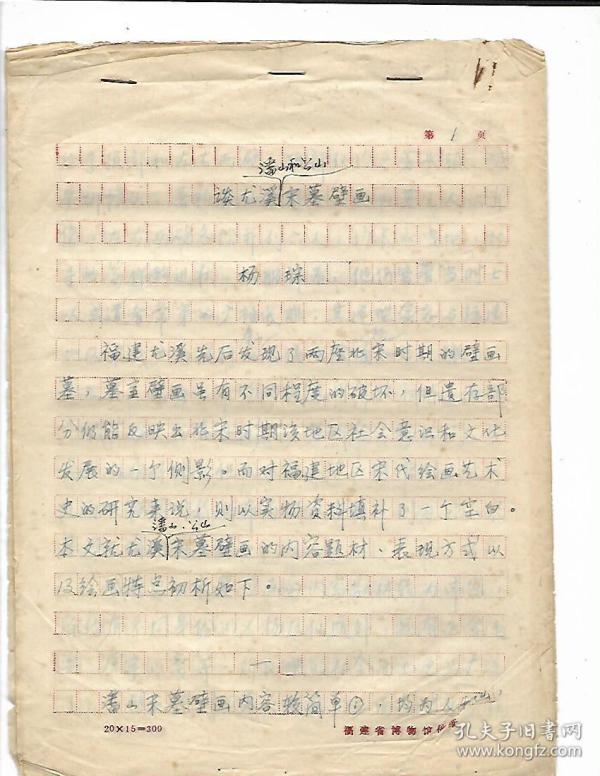 第 1 页
潘山和公山
谈尤溪宋墓壁画
杨琮
福建尤溪先后发现了两座北宋时期的壁画
墓，墓室壁画虽有不同程度的破坏，但遗存部
分仍能反映出北宋时期该地区社会意识和文化
发展的一个侧影。而对福建地区宋代绘画艺术
史的研究来说，则以实物资料填补了一个空白。
潘山、公山
本文就尤溪宋墓壁画的内容题材、表现方式以
及绘画特点初析如下。
一
潘山宋墓壁画内容较简单①，均为人
20×15=300
福建省博物馆
孔夫子旧书网
www.kongfz.com